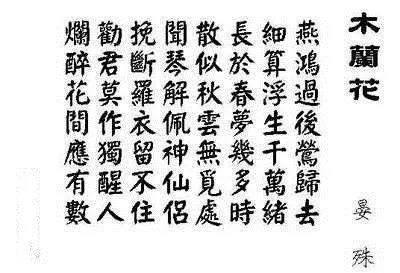 木蘭花
晏殊
燕鴻過後鶯歸去
細算浮生千萬緒
長於春夢幾多時
散似秋雲無覓處
聞琴解佩神仙侶
挽斷羅衣留不住
勸君莫作獨醒人
爛醉花間應有數